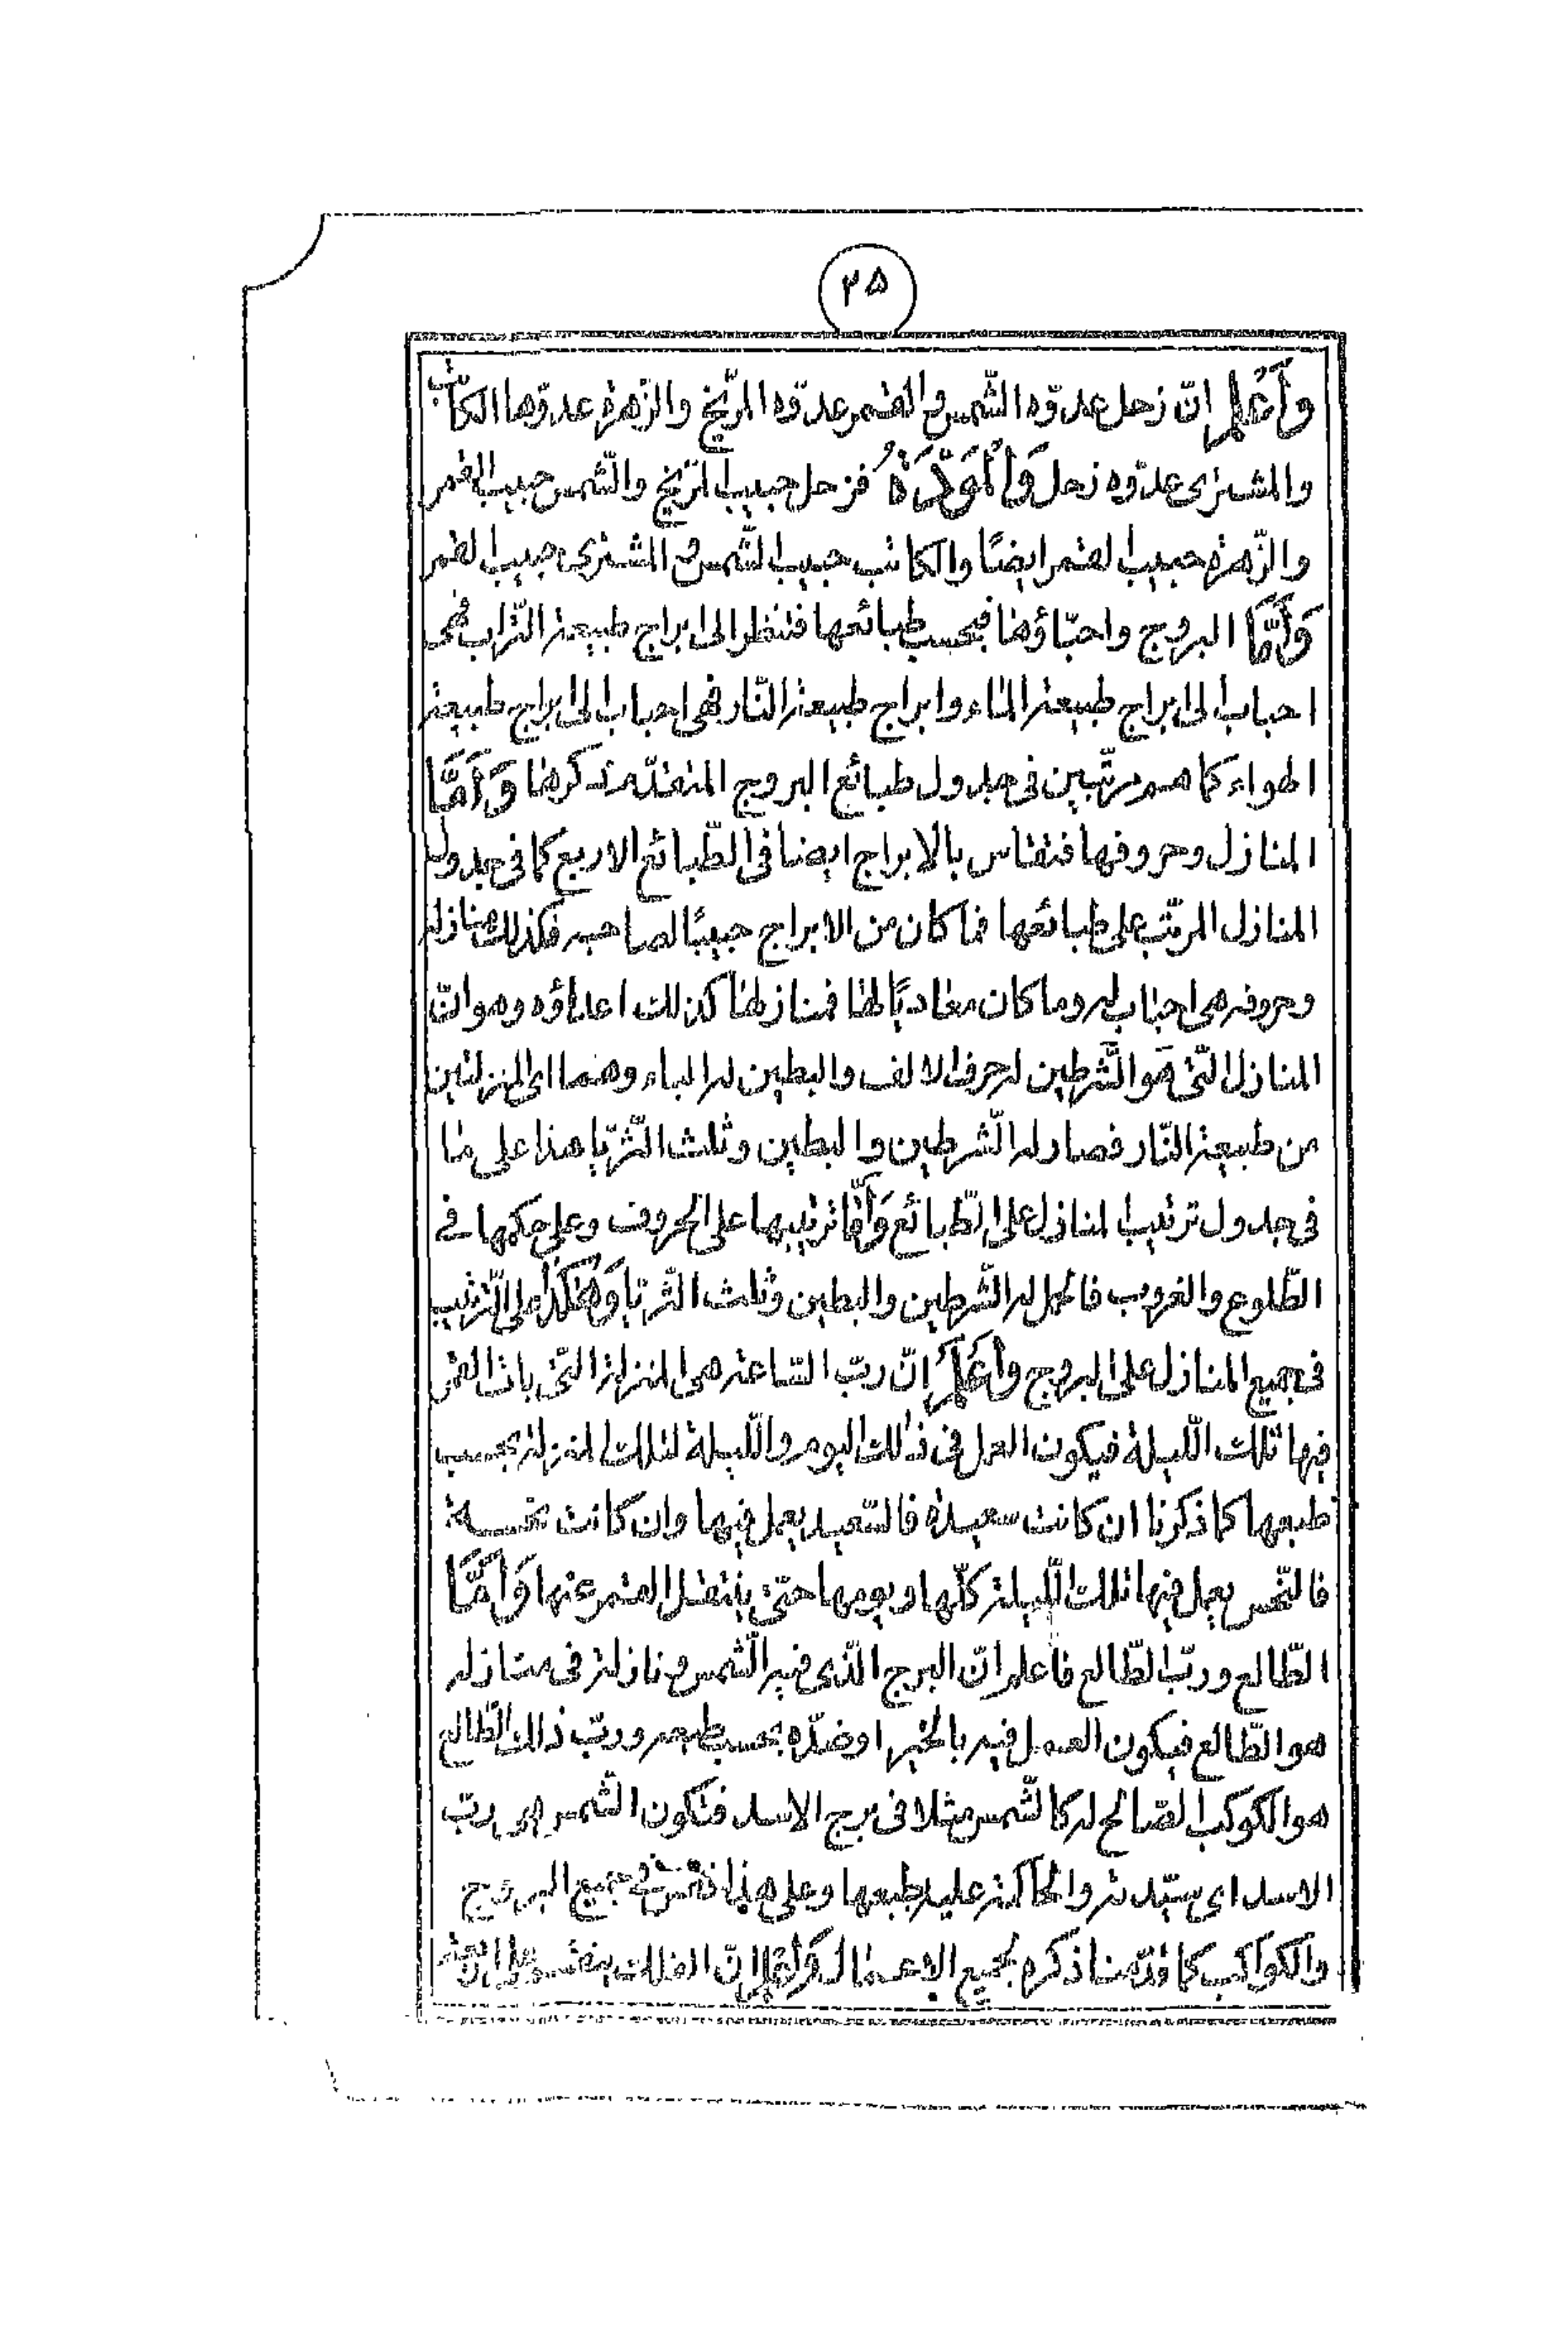 ۲۵
وَاَعْلَمْ انّ زحل عدوّه الشّمس والقمر عدوّه المرّيخ والزّهرة عدوّها الكاتب
والمشترى عدوّه زحل وَالْمَوَدَّةُ فزحل حبيب المرّيخ والشّمس حبيب القمر
والزّهرة حبيب القمر ايضًا والكاتب حبيب الشّمس والمشترى حبيب القمر
وَاَمَّا البروج واحبّاؤها فبحسب طبائعها فتنظر الى ابراج طبيعة التّراب فهى
احباب الى ابراج طبيعة الماء وابراج طبيعة النّار فهى احباب الى ابراج طبيعة
الهواء كما هم مرتّبين فى جدول طبائع البروج المتقدّمة ذكرها وَاَمَّا
المنازل وحروفها فتقاس بالابراج ايضا فى الطّبائع الاربع كما فى جدول
المنازل المرتّب على طبائعها فما كان من الابراج حبيبًا لصاحبه فكذلك منازله
وحروفه هى احباب له وما كان معاديًا لها فمنازلها كذلك اعداؤه وهو انّ
المنازل الّتى هو الشّرطين له حرف الالف والبطين له الباء وهما اى المنزلتين
من طبيعة النّار فصار له الشّرطين والبطين وثلث الثّريّا هذا على ما
فى جدول ترتيب المنازل على الطّبائع وَاَمَّا ترتيبها على الحروف وعلى حكمها فى
الطّلوع والغروب فالحمل له الشّرطين والبطين وثلث الثّريّا وَهٰكَذَا على التّرتيب
فى جميع المنازل على البروج وَاَعْلَمْ انّ ربّ السّاعة هى المنزلة الّتى بات القمر
فيها تلك اللّيلة فيكون العمل فى ذلك اليوم واللّيلة لتلك المنزلة بحسب
طبعها كما ذكرنا ان كانت سعيدة فالسّعيد يعمل فيها وان كانت نحسة
فالنّحس يعمل فيها تلك اللّيلة كلّها ويومها حتّى ينتقل القمر عنها وَاَمَّا
الطّالع وربّ الطّالع فاعلم انّ البرج الّذى فيه الشّمس نازلة فى منازله
هو الطّالع فيكون العمل فيه بالخير او ضدّه بحسب طبعه وربّ ذلك الطّالع
هو الكوكب الصّالح له كالشّمس مثلا فى برج الاسد فتكون الشّمس هى ربّ
الاسد اى سيّدته والحاكمة عليه بطبعها وعلى هذا فقس فى جميع البروج
والكواكب كما قدّمنا ذكره بجميع الاعمال وَاَعْلَمْ انّ الفلك ينقسم على